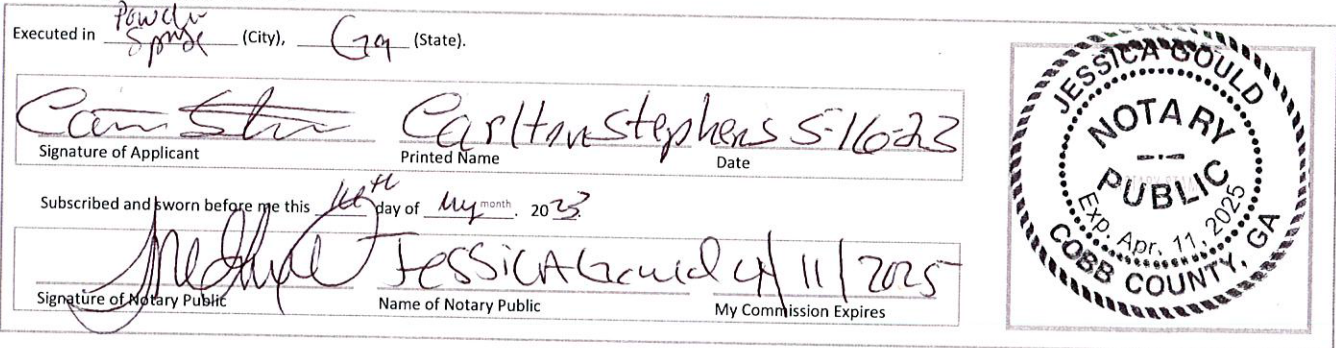 Executed in Powder Springs (City), Ga (State).
Carlton Stephens 5-16-23
Signature of Applicant Printed Name Date
Subscribed and sworn before me this 16th day of May month. 2023.
Jessica Gould 4/11/2025
Signature of Notary Public Name of Notary Public My Commission Expires
JESSICA GOULD
NOTARY
PUBLIC
Exp. Apr. 11, 2025
COBB COUNTY, GA